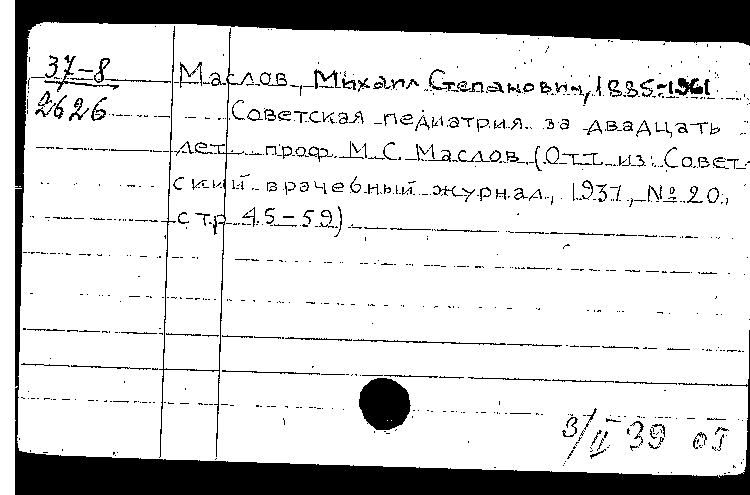 37-8
2626
Маслов, Михаил Степанович, 1885-1961
Советская педиатрия за двадцать
лет проф. М.С. Маслов (Отт. из: Совет-
ский врачебный журнал, 1937, № 20,
стр 45-59)
3/II 39